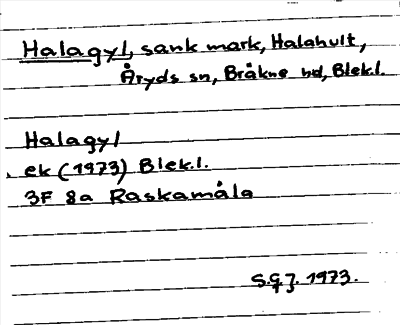 Halagyl, sank mark, Halahult,
Åryds sn, Bräkne hd, Blek.l.
Halagyl
ek (1973) Blek.l.
3F 8a Raskamåla
S.G.J. 1973.